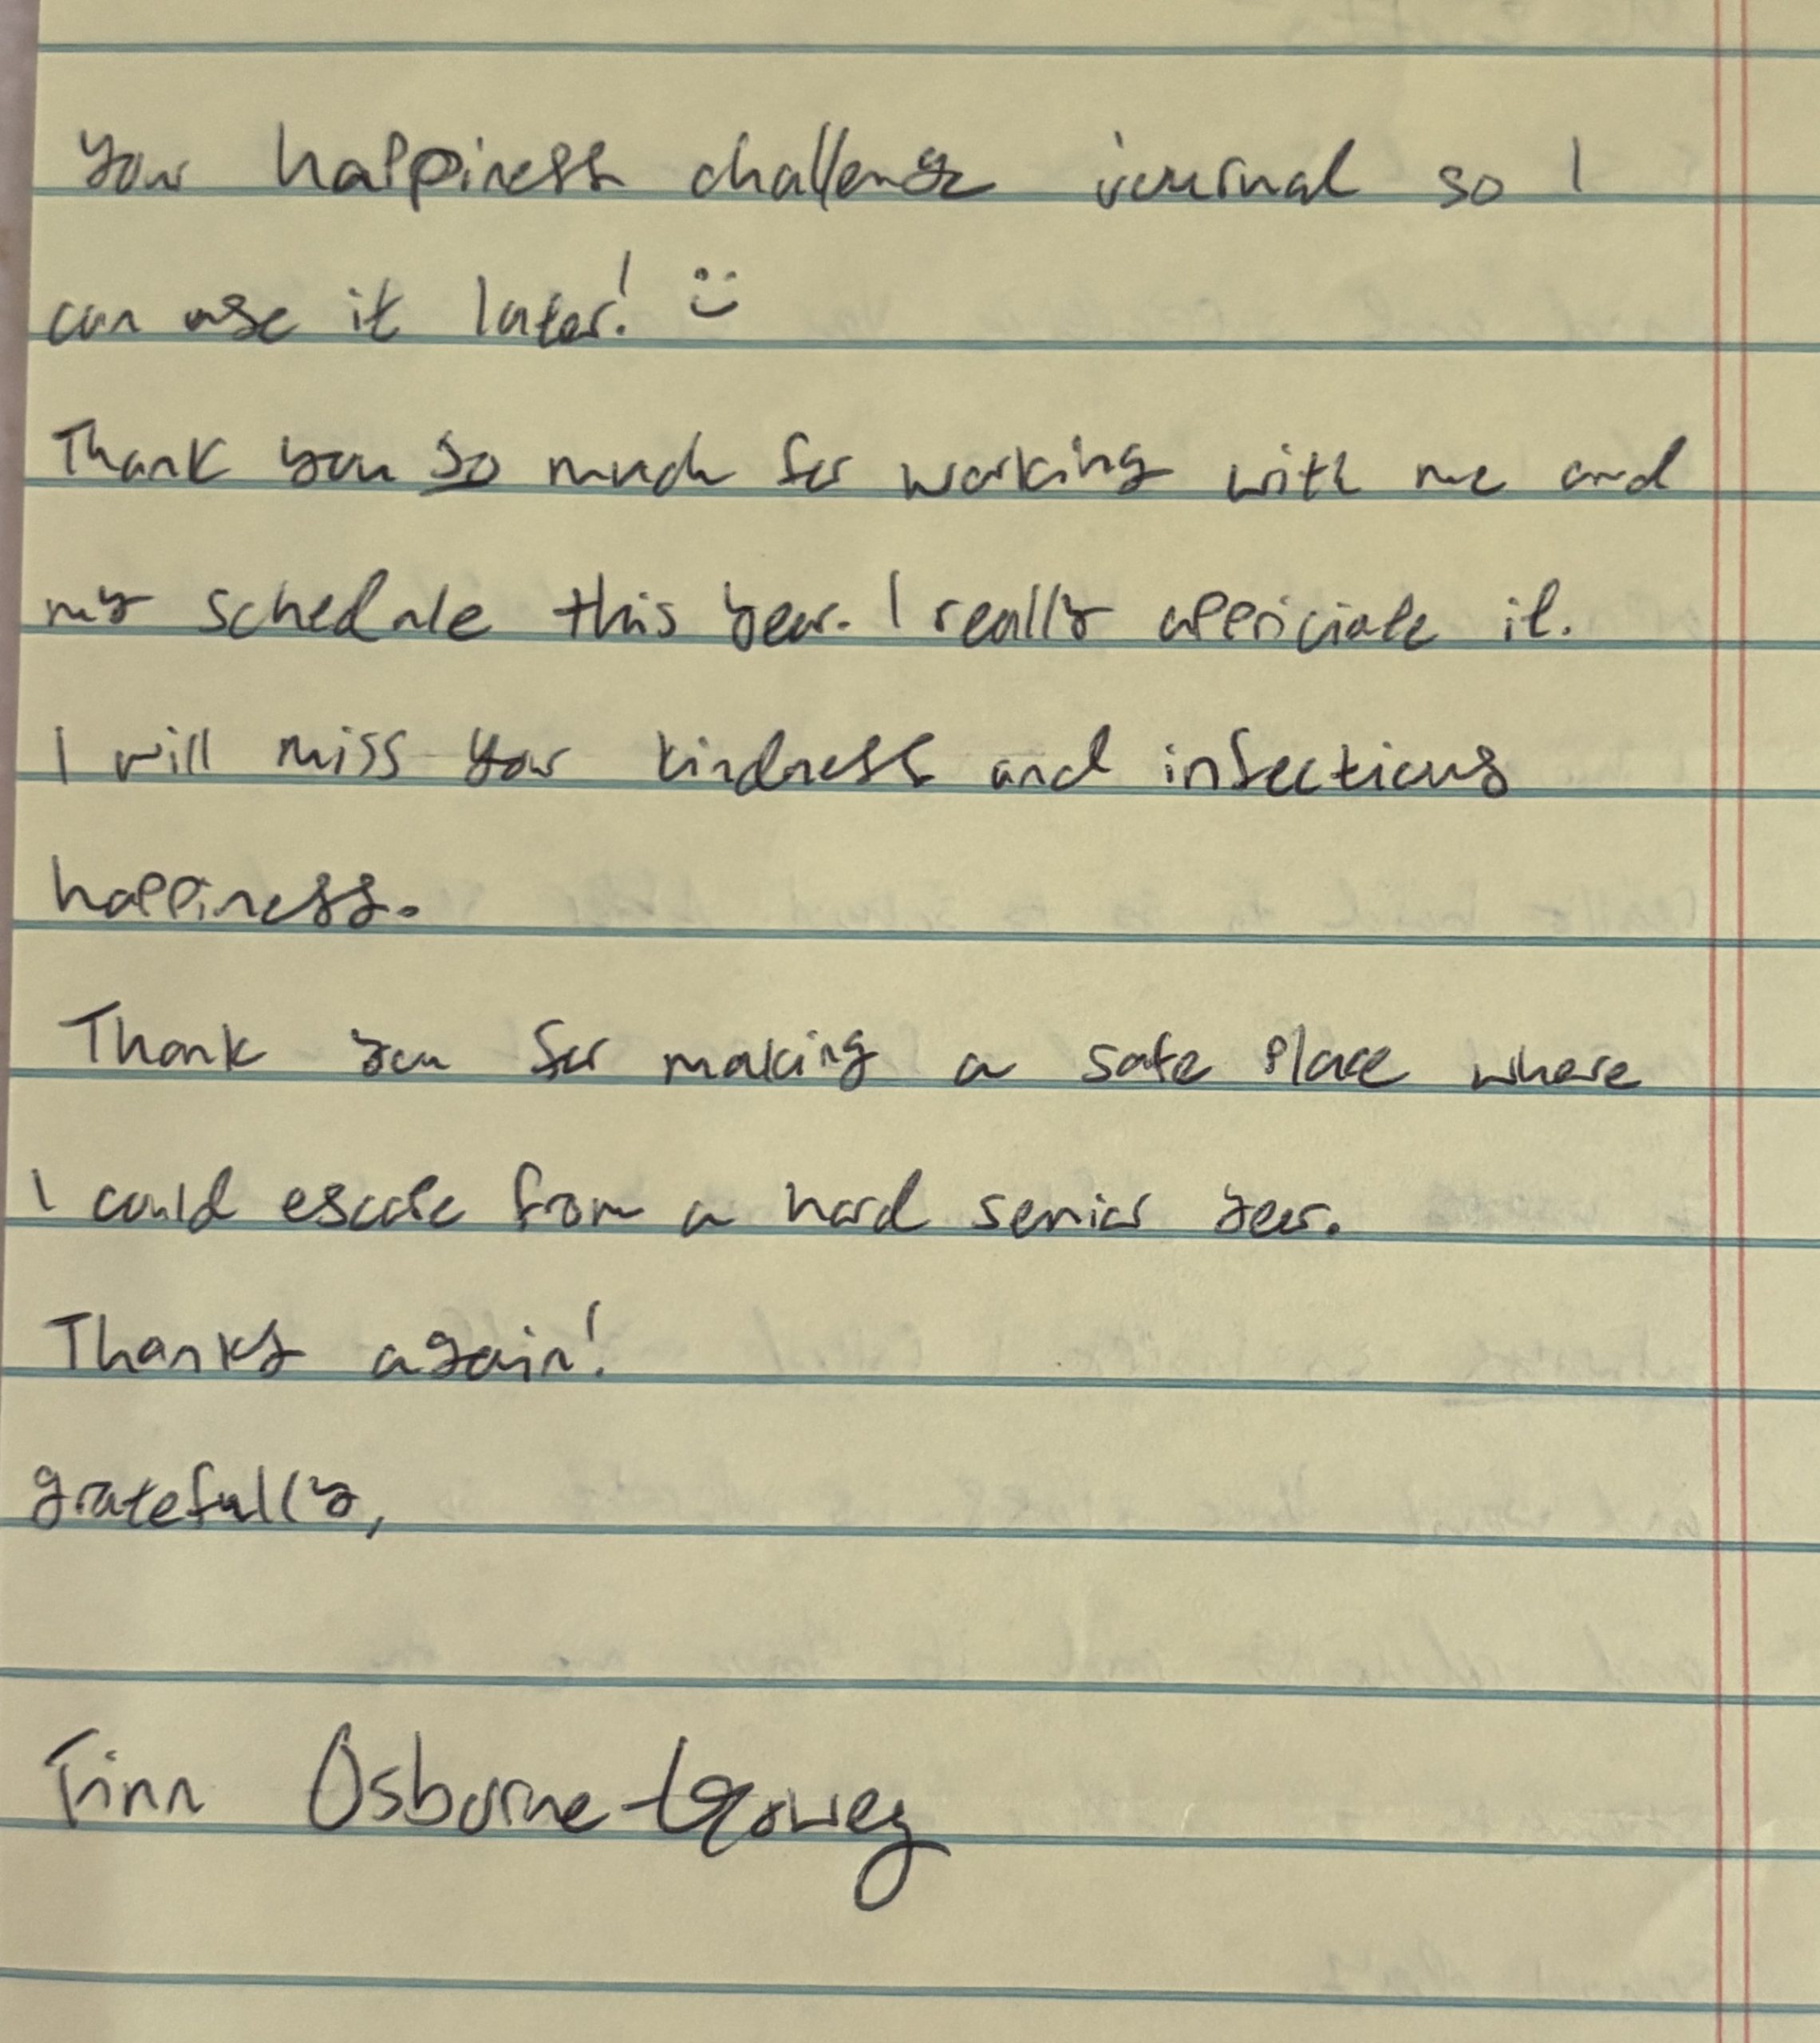 your happiness challenge journal so I
can use it later! :)
Thank you so much for working with me and
my schedule this year. I really appriciate it.
I will miss your kindness and infectious
happiness.
Thank you for making a safe place where
I could escape from a hard senior year.
Thanks again!
gratefully,
Finn Osborne